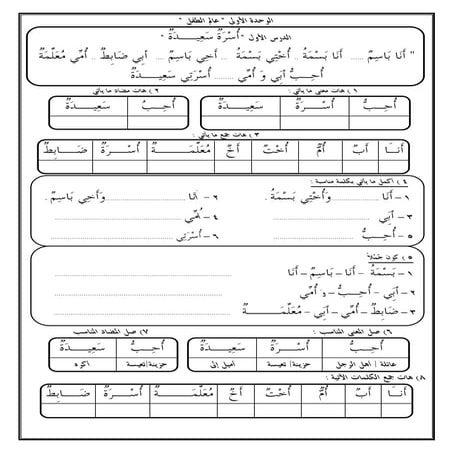 الوحدة الأولى " عالم الطفل "
الدرس الأول " أُسْرَةٌ سَعِيدَةٌ "
" أَنَا بَاسِمٌ ..... أَنَا بَسْمَةُ . أُخْتِي بَسْمَةُ .. أَخِي بَاسِمٌ .... أَبِي ضَابِطٌ .. أُمِّي مُعَلِّمَةٌ
أُحِبُّ أَبِي وَ أُمِّي ....... أُسْرَتِي سَعِيدَةٌ
١) هات معنى ما يأتي : ٢) هات مضاد ما يأتي
أُحِبُّ أُسْرَةٌ سَعِيدَةٌ أُحِبُّ سَعِيدَةٌ
٣) هات جمع ما يأتي :
أَنَا أَبٌ أُمٌّ أُخْتٌ أَخٌ مُعَلِّمَةٌ أُسْرَةٌ ضَابِطٌ
٤) أكمل ما يأتي بكلمة مناسبة :
١- أَنَا .............. وَأُخْتِي بَسْمَةُ . ٢- أنا .............. وَأَخِي بَاسِمٌ .
٣- أَبِي .............. ٤- أُمِّي ..............
٥- أُحِبُّ .............. ٦- أُسْرَتِي ..............
٥) كون جملاً
١- بَسْمَةُ - أَنَا - بَاسِمٌ - أَنَا ..............
٢- أَبِي - أُحِبُّ - وَ أُمِّي ..............
٣- ضَابِطٌ - أُمِّي - أَبِي - مُعَلِّمَةٌ ..............
٦) صل المعنى المناسب : ٧) صل المضاد المناسب
أُحِبُّ أُسْرَةٌ سَعِيدَةٌ أُحِبُّ سَعِيدَةٌ
عائلة | أهل الرجل حزينة|تعيسة أميل إلى حزينة|تعيسة أكره
٨) هات جمع الكلمات الآتية :
أَنَا أَبٌ أُمٌّ أُخْتٌ أَخٌ مُعَلِّمَةٌ أُسْرَةٌ ضَابِطٌ